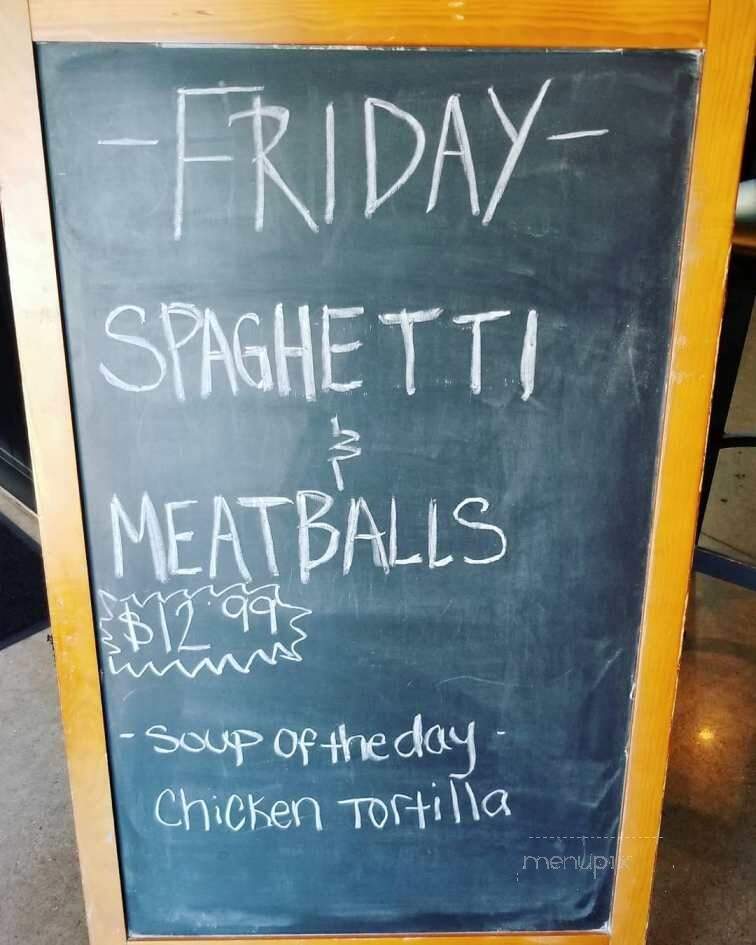 - FRIDAY -
SPAGHETTI
&
MEATBALLS
$12.99
- Soup of the day -
Chicken Tortilla
menupix